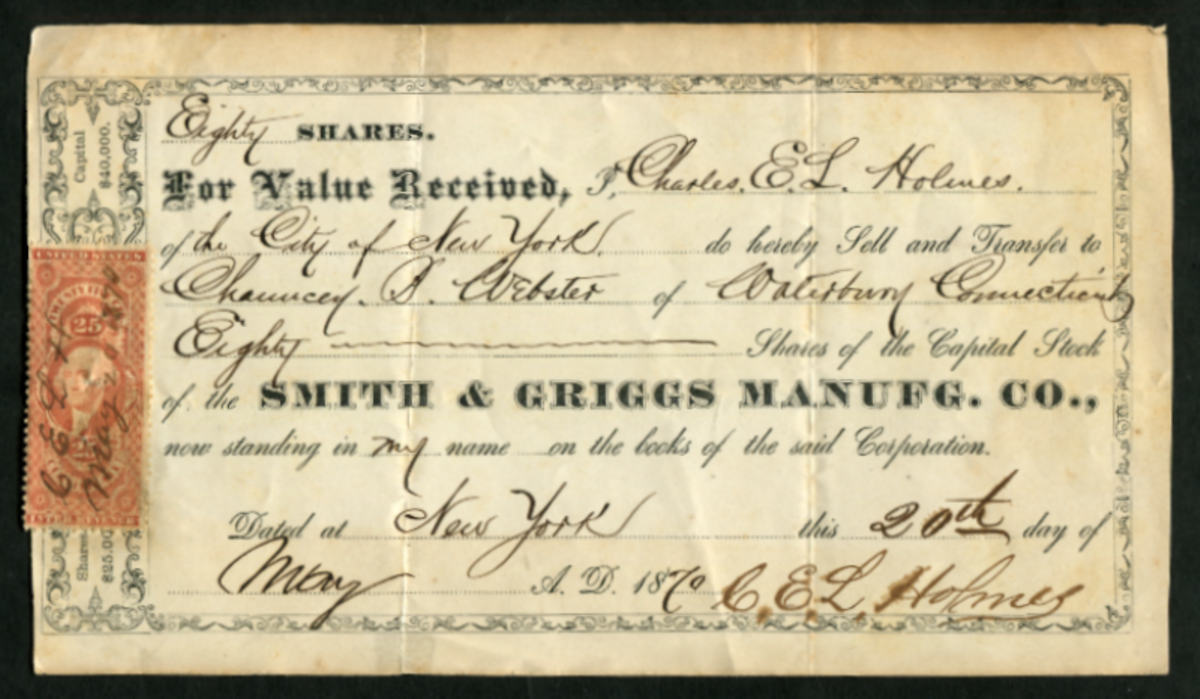 Capital
$40,000.
Eighty SHARES.
For Value Received, I, Charles. E. L. Holmes.
of the City of New York. do hereby Sell and Transfer to
Chauncey. B. Webster of Waterbury Connecticut
Eighty Shares of the Capital Stock
of the SMITH & GRIGGS MANUFG. CO.,
now standing in my name on the books of the said Corporation.
Dated at New York this 20th day of
May A. D. 1870 C. E. L. Holmes
UNITED STATES
25
C E L H
May
INTER. REVENUE
Shares
$25.00